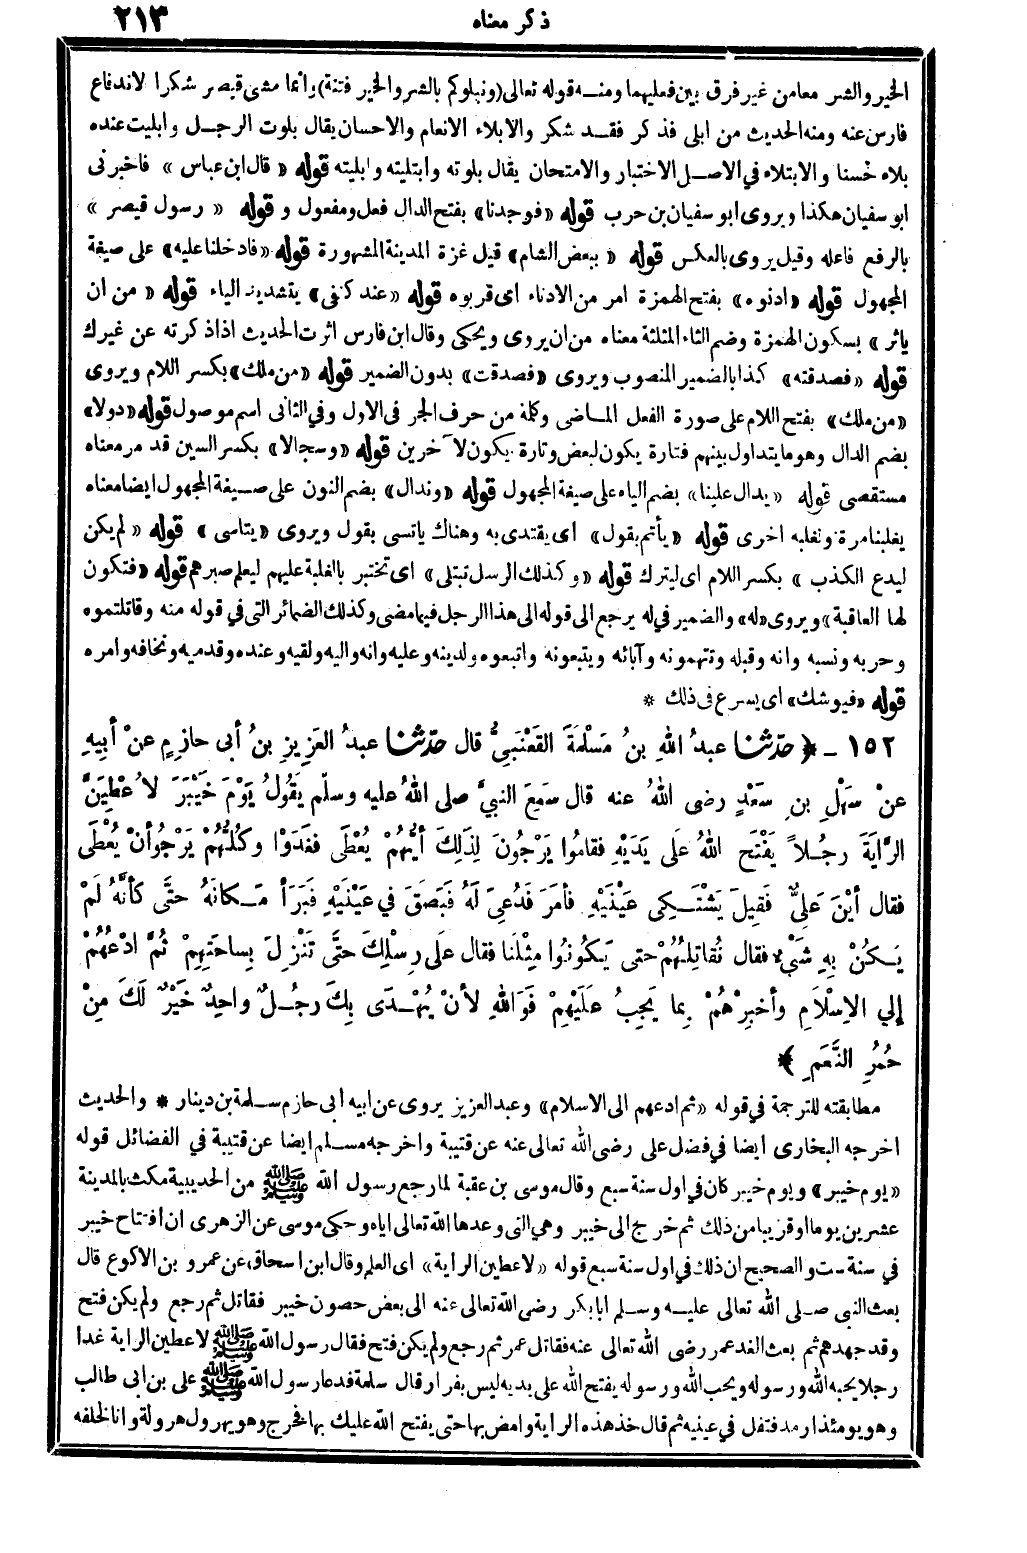 ذكر معناه ٢١٣
الخير والشر معا من غير فرق بين فعليهما ومنه قوله تعالى (ونبلوكم بالشر والخير فتنة) وانما مشى قيصر شكرا لاندفاع
فارس عنه ومنه الحديث من ابلى فذكر فقد شكر والابلاء الانعام والاحسان يقال بلوت الرجل وابليت عنده
بلاء حسنا والابتلاء في الاصل الاختبار والامتحان يقال بلوته وابتليته وابليته قوله «قال ابن عباس» فاخبرنى
ابو سفيان هكذا ويروى ابو سفيان بن حرب قوله «فوجدنا» بفتح الدال فعل ومفعول و قوله «رسول قيصر»
بالرفع فاعله وقيل يروى بالعكس قوله «ببعض الشام» قيل غزة المدينة المشهورة قوله «فادخلنا عليه» على صيغة
المجهول قوله «ادنوه» بفتح الهمزة امر من الادناء اى قربوه قوله «عند كتفي» بتشديد الياء قوله «من ان
ياثر» بسكون الهمزة وضم الثاء المثلثة معناه من ان يروى ويحكى وقال ابن فارس اثرت الحديث اذا ذكرته عن غيرك
قوله «فصدقته» كذا بالضمير المنصوب ويروى «فصدقت» بدون الضمير قوله «من ملك» بكسر اللام ويروى
«من ملك» بفتح اللام على صورة الفعل الماضى وكلمة من حرف الجر فى الاول وفي الثانى اسم موصول قوله «دولا»
بضم الدال وهو ما يتداول بينهم فتارة يكون لبعض وتارة يكون لآخرين قوله «وسجالا» بكسر السين قد مر معناه
مستقصى قوله «يدال علينا» بضم الياء على صيغة المجهول قوله «وندال» بضم النون على صيغة المجهول ايضا معناه
يغلبنا مرة ونغلبه اخرى قوله «يأتم بقول» اى يقتدى به وهناك ياتسى بقول ويروى «يتاسى» قوله «لم يكن
ليدع الكذب» بكسر اللام اى ليترك قوله «وكذلك الرسل تبتلى» اى تختبر بالغلبة عليهم ليعلم صبرهم قوله «فتكون
لها العاقبة» ويروى «له» والضمير في له يرجع الى قوله الى هذا الرجل فيما مضى وكذلك الضمائر التى في قوله منه وقاتلتموه
وحربه ونسبه وانه وقبله وتتهمونه وآبائه ويتبعونه واتبعوه ولدينه وعليه وانه واليه ولقيه وعنده وقدميه ونخافه وامره
قوله «فيوشك» اى يسرع فى ذلك *
١٥٢ - ﴿ حدّثنا عبدُ اللهِ بنُ مَسْلَمَةَ القَعْنَبِيُّ قال حدّثنا عبدُ العَزِيزِ بنُ أبى حازِمٍ عنْ أبِيهِ
عنْ سَهْلِ بنِ سَعْدٍ رضى اللهُ عنه قال سَمِعَ النبيَّ صلى اللهُ عليه وسلّم يَقُولُ يَوْمَ خَيْبَرَ لَاُعْطِيَنَّ
الرَّايَةَ رجُلاً يَفْتَح اللهُ علَى يَدَيْهِ فقامُوا يَرْجُونَ لِذَلِكَ أيُّهُمْ يُعْطَى فغَدَوْا وكُلُّهُمْ يَرْجُو أنْ يُعْطَى
فقال أيْنَ علِيٌّ فَقِيلَ يَشْتَكِى عَيْنَيْهِ فأمَرَ فَدُعِىَ لَهُ فَبَصَقَ في عَيْنَيْهِ فَبَرَأَ مَكانَهُ حتَّى كأنَّهُ لَمْ
يَكُنْ بِهِ شَيْءٌ فقال نُقاتِلُهُمْ حتى يَكُونُوا مِثْلَنَا فقال علَى رِسْلِكَ حتَّى تَنْزِلَ بِساحَتِهِمْ ثُمَّ ادْعُهُمْ
إلي الاِسْلَامِ وأخبِرْهُمْ بِما يَجِبُ علَيْهِمْ فَوَاللهِ لأنْ يُهْدَى بِكَ رجُلٌ واحِدٌ خَيْرٌ لَكَ مِنْ
حُمُرِ النَّعَمِ ﴾
مطابقته للترجمة في قوله «ثم ادعهم الى الاسلام» وعبد العزيز يروى عن ابيه ابى حازم سلمة بن دينار * والحديث
اخرجه البخارى ايضا في فضل على رضى الله تعالى عنه عن قتيبة واخرجه مسلم ايضا عن قتيبة في الفضائل قوله
«يوم خيبر» ويوم خيبر كان في اول سنة سبع وقال موسى بن عقبة لما رجع رسول الله ﷺ من الحديبية مكث بالمدينة
عشرين يوما او قريبا من ذلك ثم خرج الى خيبر وهي التى وعدها الله تعالى اياه وحكى موسى عن الزهرى ان افتتاح خيبر
في سنة ست والصحيح ان ذلك في اول سنة سبع قوله «لاعطين الراية» اى العلم وقال ابن اسحاق عن عمرو بن الاكوع قال
بعث النبى صلى الله تعالى عليه وسلم ابا بكر رضى الله تعالى عنه الى بعض حصون خيبر فقاتل ثم رجع ولم يكن فتح
وقد جهدهم ثم بعث الغد عمر رضى الله تعالى عنه فقاتل عمر ثم رجع ولم يكن فتح فقال رسول الله ﷺ لاعطين الراية غدا
رجلا يحبه الله ورسوله ويحب الله ورسوله يفتح الله على يديه ليس بفرار قال سلمة فدعا رسول الله ﷺ على بن ابى طالب
وهو يومئذ ارمد فتفل في عينيه ثم قال خذ هذه الراية وامض بها حتى يفتح الله عليك بها فخرج وهو يهرول هرولة وانا لخلفه